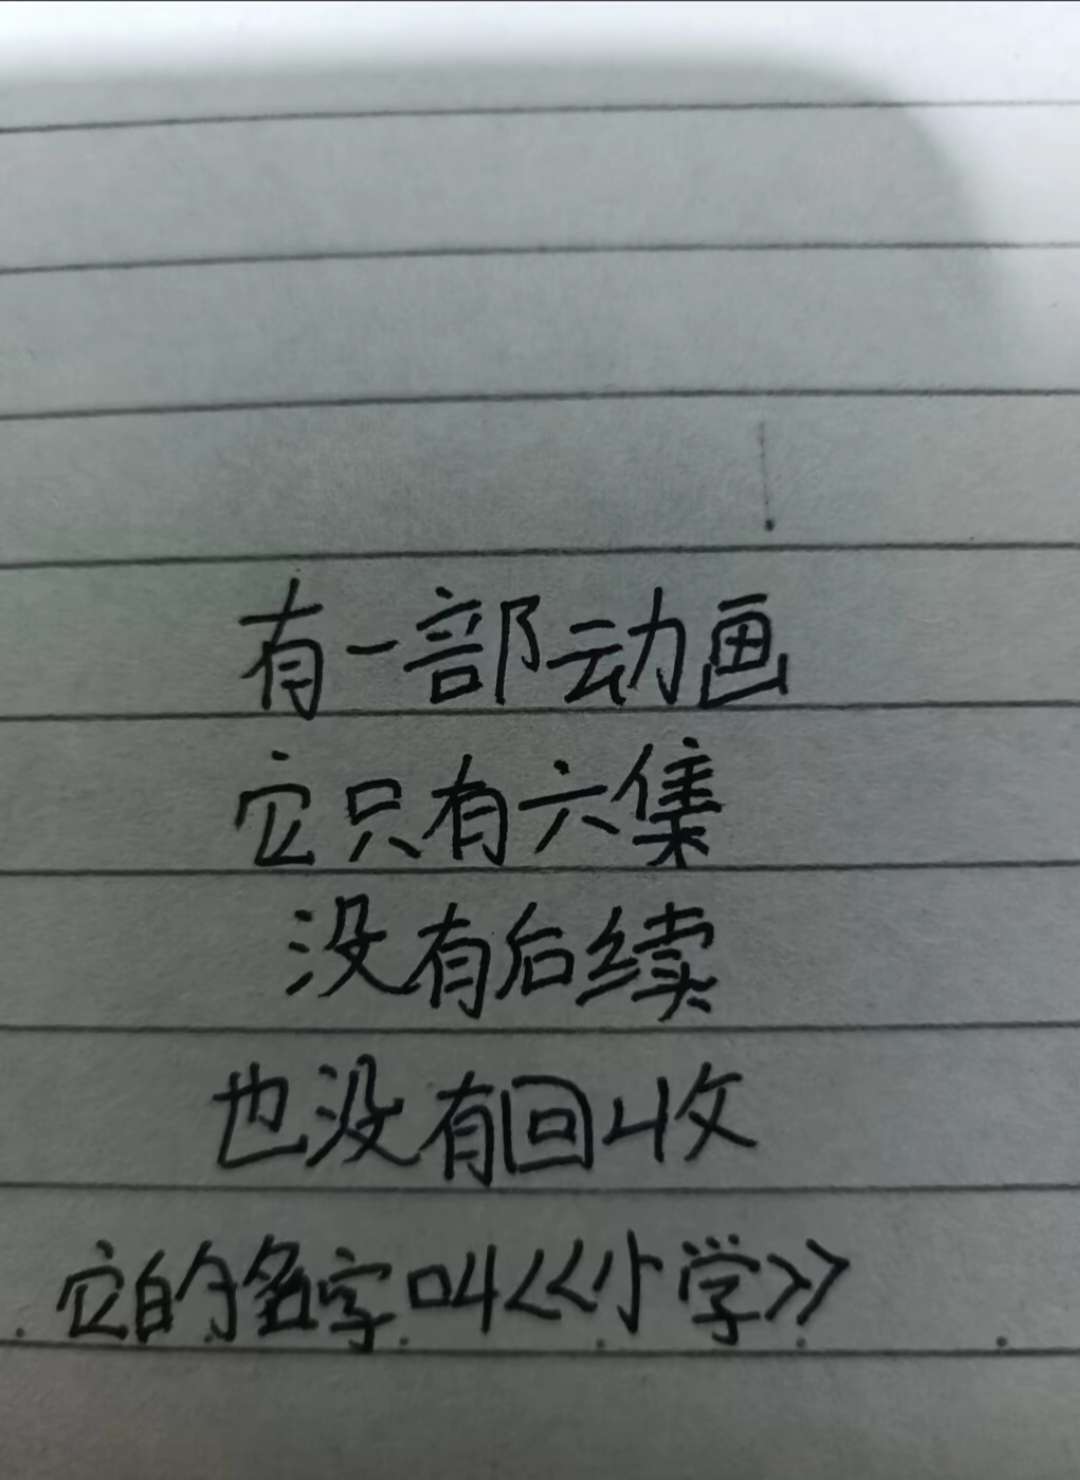 有一部动画
它只有六集
没有后续
也没有回收
它的名字叫<<小学>>